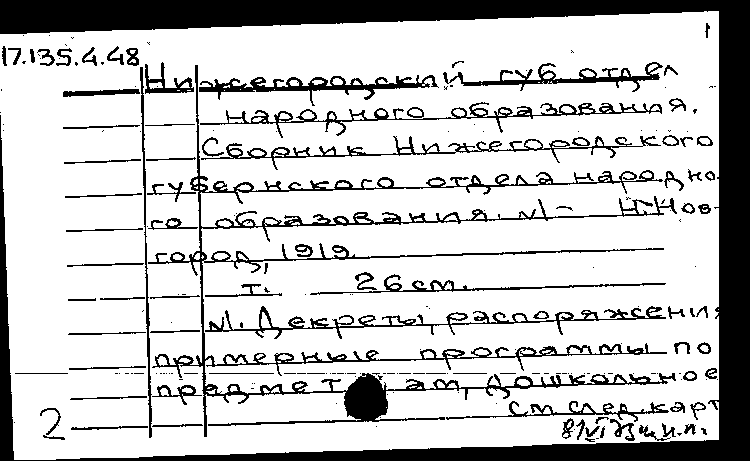 1
17.135.4.48
Нижегородский губ. отдел
народного образования.
Сборник Нижегородского
губернского отдела народно-
го образования. №1 - Н.-Нов-
город, 1919.
т. 26 см.
№1. Декреты, распоряжения
примерные программы по
предмет ам, дошкольное
См след. карт
2